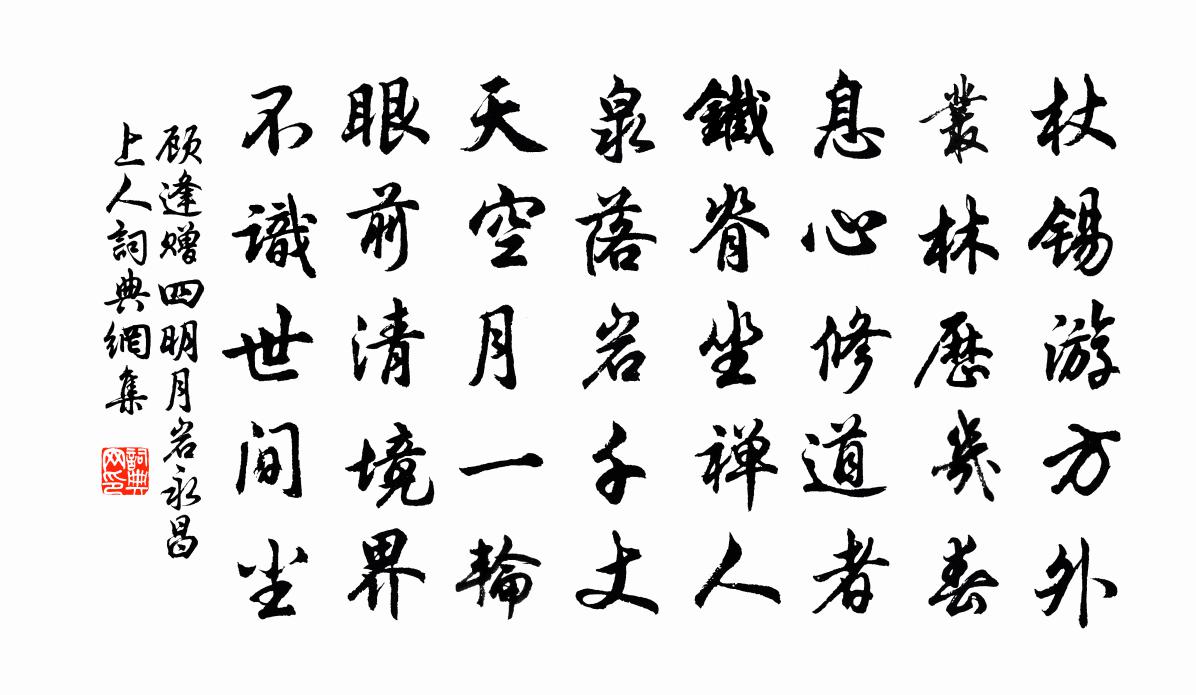 杖锡游方外
叢林歷幾春
息心修道者
鐵脊坐禅人
泉落岩千丈
天空月一輪
眼前清境界
不識世间尘
顾逢赠四明月岩永昌
上人詞典網集
詞典网印